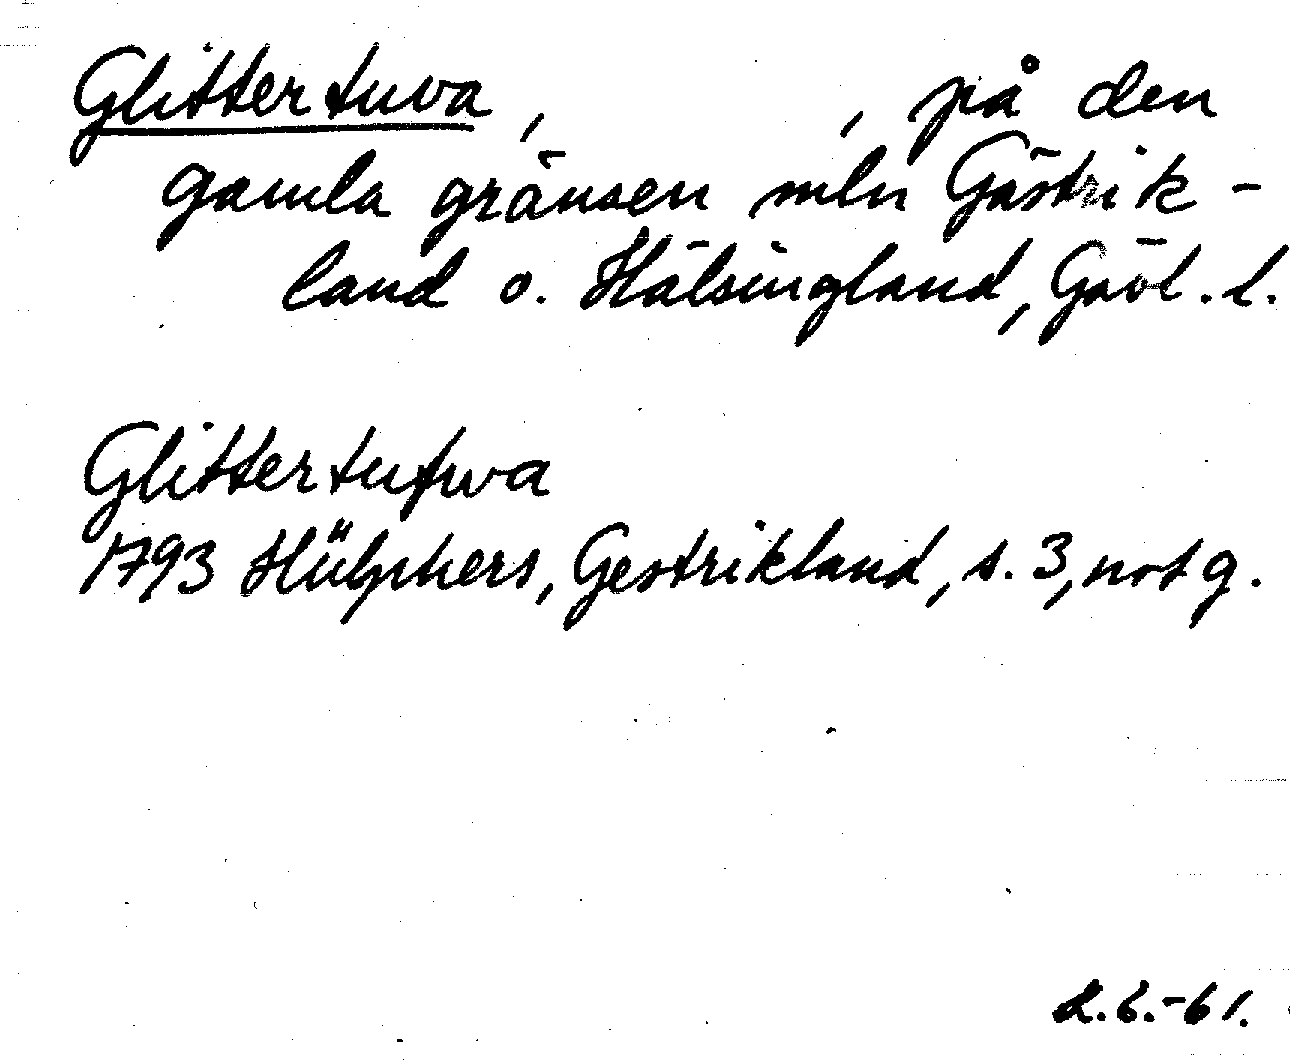 Glittertuva, , på den
gamla gränsen mln Gästrik-
land o. Hälsingland, Gävl. l.
Glittertufwa
1793 Hülphers, Gestrikland, s. 3, not g.
2.6.-61.